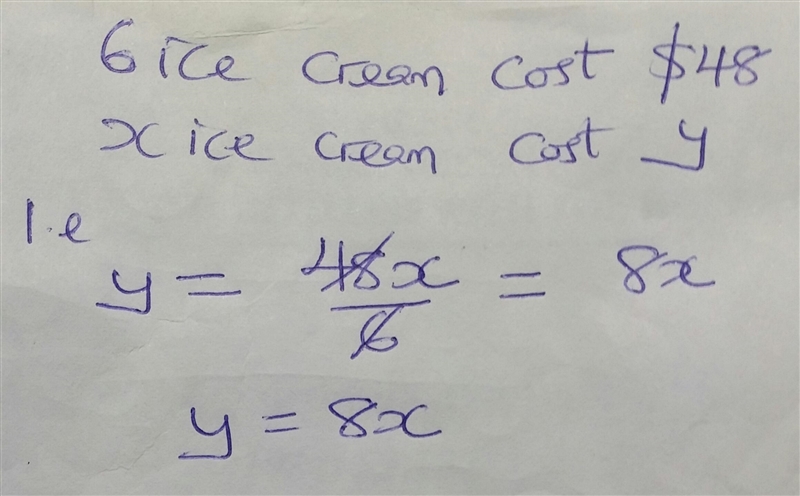 6 ice cream cost $48
x ice cream cost y
I.e
y = 48x/6 = 8x
y = 8x